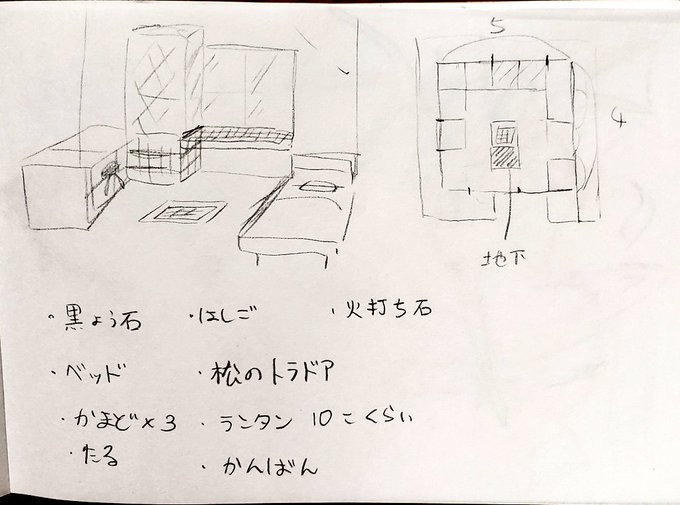 5
4
地下
・黒よう石 ・はしご ・火打ち石
・ベッド ・松のトラドア
・かまど×3 ・ランタン 10こくらい
・たる ・かんばん